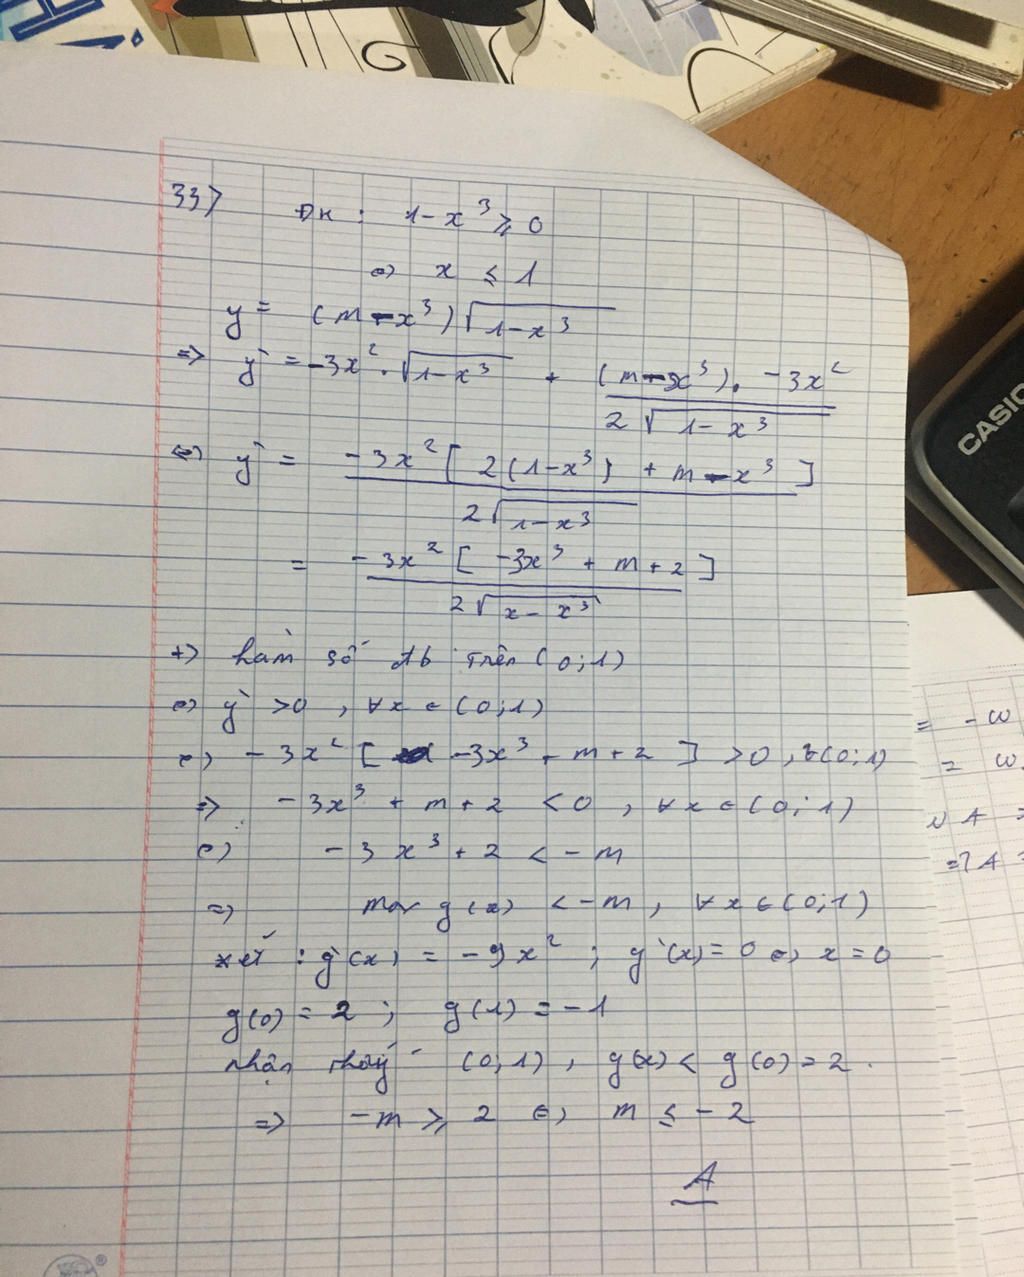 33) ĐK : 1 - x³ ≥ 0
⇔ x ≤ 1
y = (m - x³)√(1-x³)
⇒ y' = -3x² . √(1-x³) + (m - x³). -3x² / 2√(1-x³)
⇔ y' = -3x² [ 2(1-x³) + m - x³ ] / 2√(1-x³)
= -3x² [ -3x³ + m + 2 ] / 2√(x - x³)
+) hàm số đb trên (0;1)
⇔ y' > 0 , ∀x ∈ (0;1)
⇔ -3x² [ -3x³ + m + 2 ] > 0 , ∀(0;1)
⇒ -3x³ + m + 2 < 0 , ∀x ∈ (0;1)
⇔ -3x³ + 2 < -m
⇒ max g(x) < -m , ∀x ∈ (0;1)
xét : g'(x) = -9x² ; g'(x) = 0 ⇔ x = 0
g(0) = 2 ; g(1) = -1
nhận thấy (0;1) , g(x) < g(0) = 2 .
⇒ -m ≥ 2 ⇔ m ≤ -2
A
CASIO
= - ω
= ω
A
= ? A